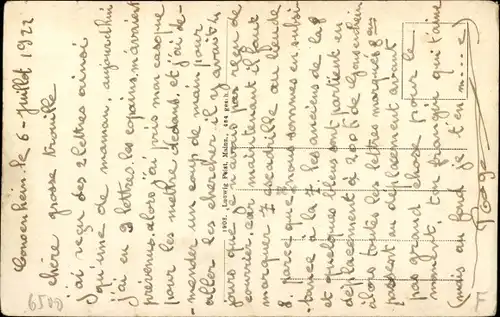 Gonsenheim. le 6 - Juillet 1922
chère grosse nouille
j'ai reçu des 2 lettres ainsi
qu'une de maman, aujourd'hui
j'ai eu 9 lettres. les copains m'avaient
prévenus. alors j'ai pris mon casque
pour les mettre dedans, et j'ai de-
-mender un coup de main pour
aller les chercher. il y avait
jours que je avais pas reçu de
courrier, car maintenant il faut
marquer 7 escadrille au lieu de
8 parce que nous sommes en subsi
tance a la 7. les anciens de la 8
et quelques bleus sont partient en
déplacement à 200 K de Gonsenheim
alors toutes les lettres marquées 8 em
passent au déplacement avant
pas grand chose pour le
moment, ton frangin qui t'aime
(mais au fond je t'em ... m....e)
Roger
1097. Ludwig Feist, Mainz, ges. gesch.
6500
F